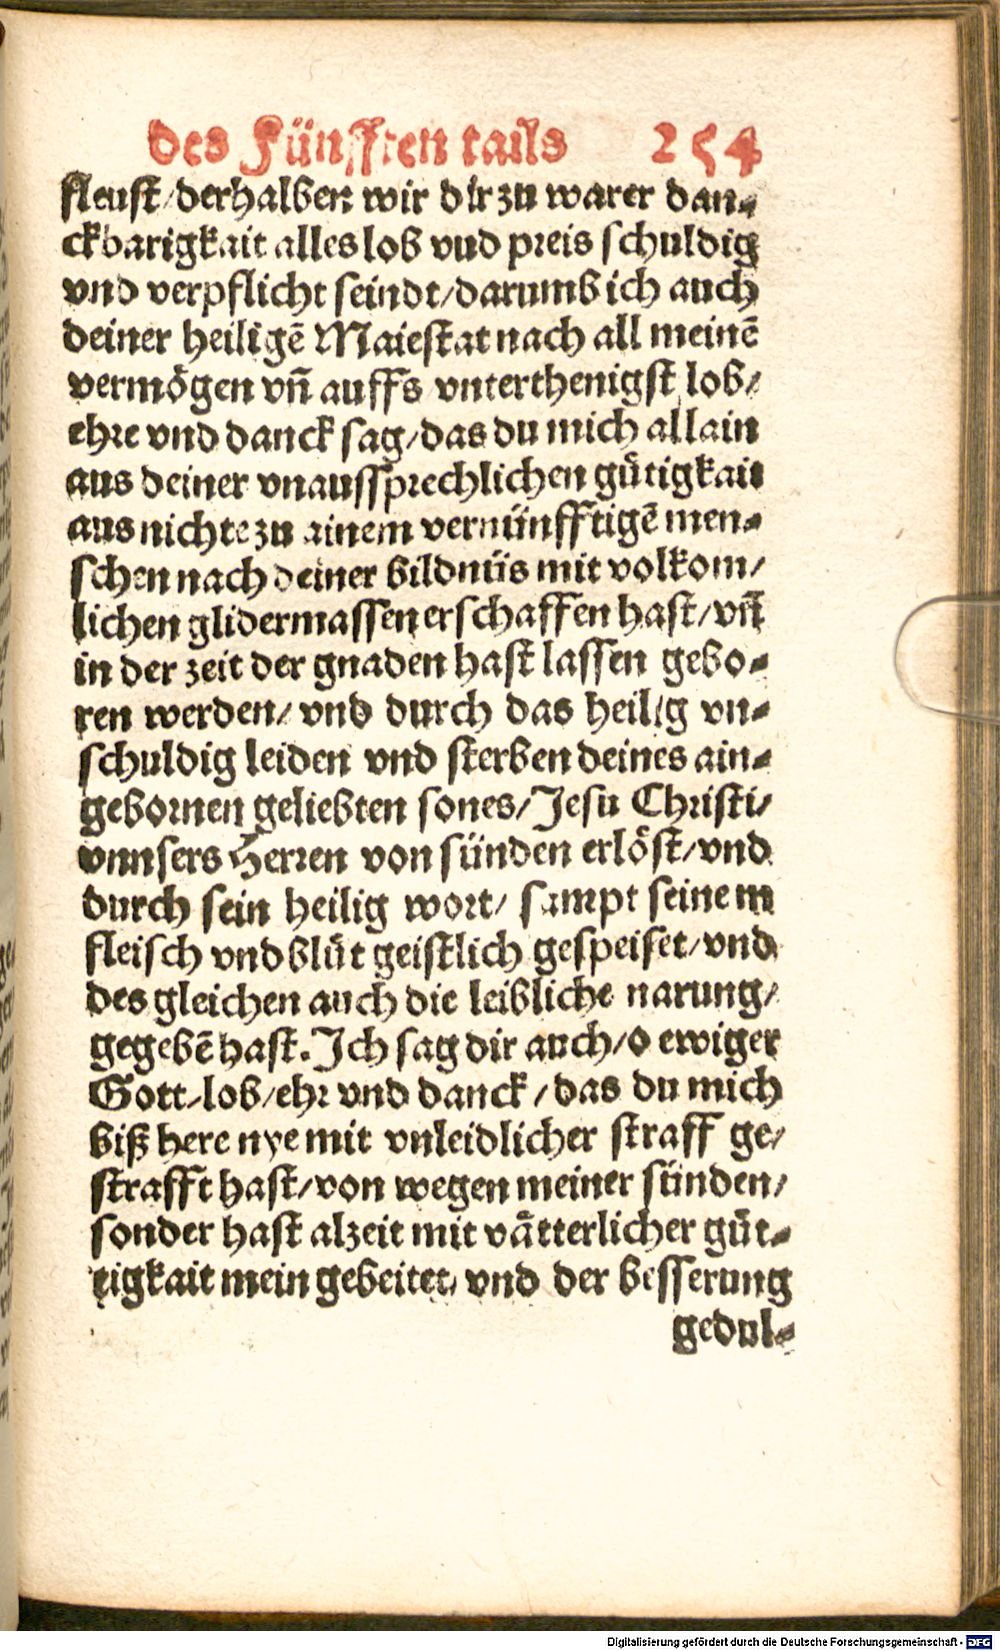 des Fünfften tails 254
fleust/derhalben wir dir zu warer dan⸗
ckbarigkait alles lob vud preis schuldig
vnd verpflicht seindt/darumb ich auch
deiner heiligē Maiestat nach all meinē
vermögen vñ auffs vnterthenigst lob/
ehre vnd danck sag/das du mich allain
aus deiner vnaussprechlichen gütigkait
aus nichte zu ainem vernünfftigē men⸗
schen nach deiner bildnüs mit volkom/
lichen glidermassen erschaffen hast/vñ
in der zeit der gnaden hast lassen gebo⸗
ren werden/vnd durch das heilig vn⸗
schuldig leiden vnd sterben deines ain⸗
gebornen geliebten sones/Jesu Christi/
vnnsers Herren von sünden erlöst/vnd
durch sein heilig wort/ sampt seinem
fleisch vnd blůt geistlich gespeiset/vnd
des gleichen auch die leibliche narung/
gegebē hast. Ich sag dir auch/o ewiger
Gott/lob/ehr vnd danck/das du mich
biß here nye mit vnleidlicher straff ge/
strafft hast/von wegen meiner sünden/
sonder hast alzeit mit vätterlicher güt⸗
tigkait mein gebeitet/vnd der besserung
gedul⸗
Digitalisierung gefördert durch die Deutsche Forschungsgemeinschaft - DFG